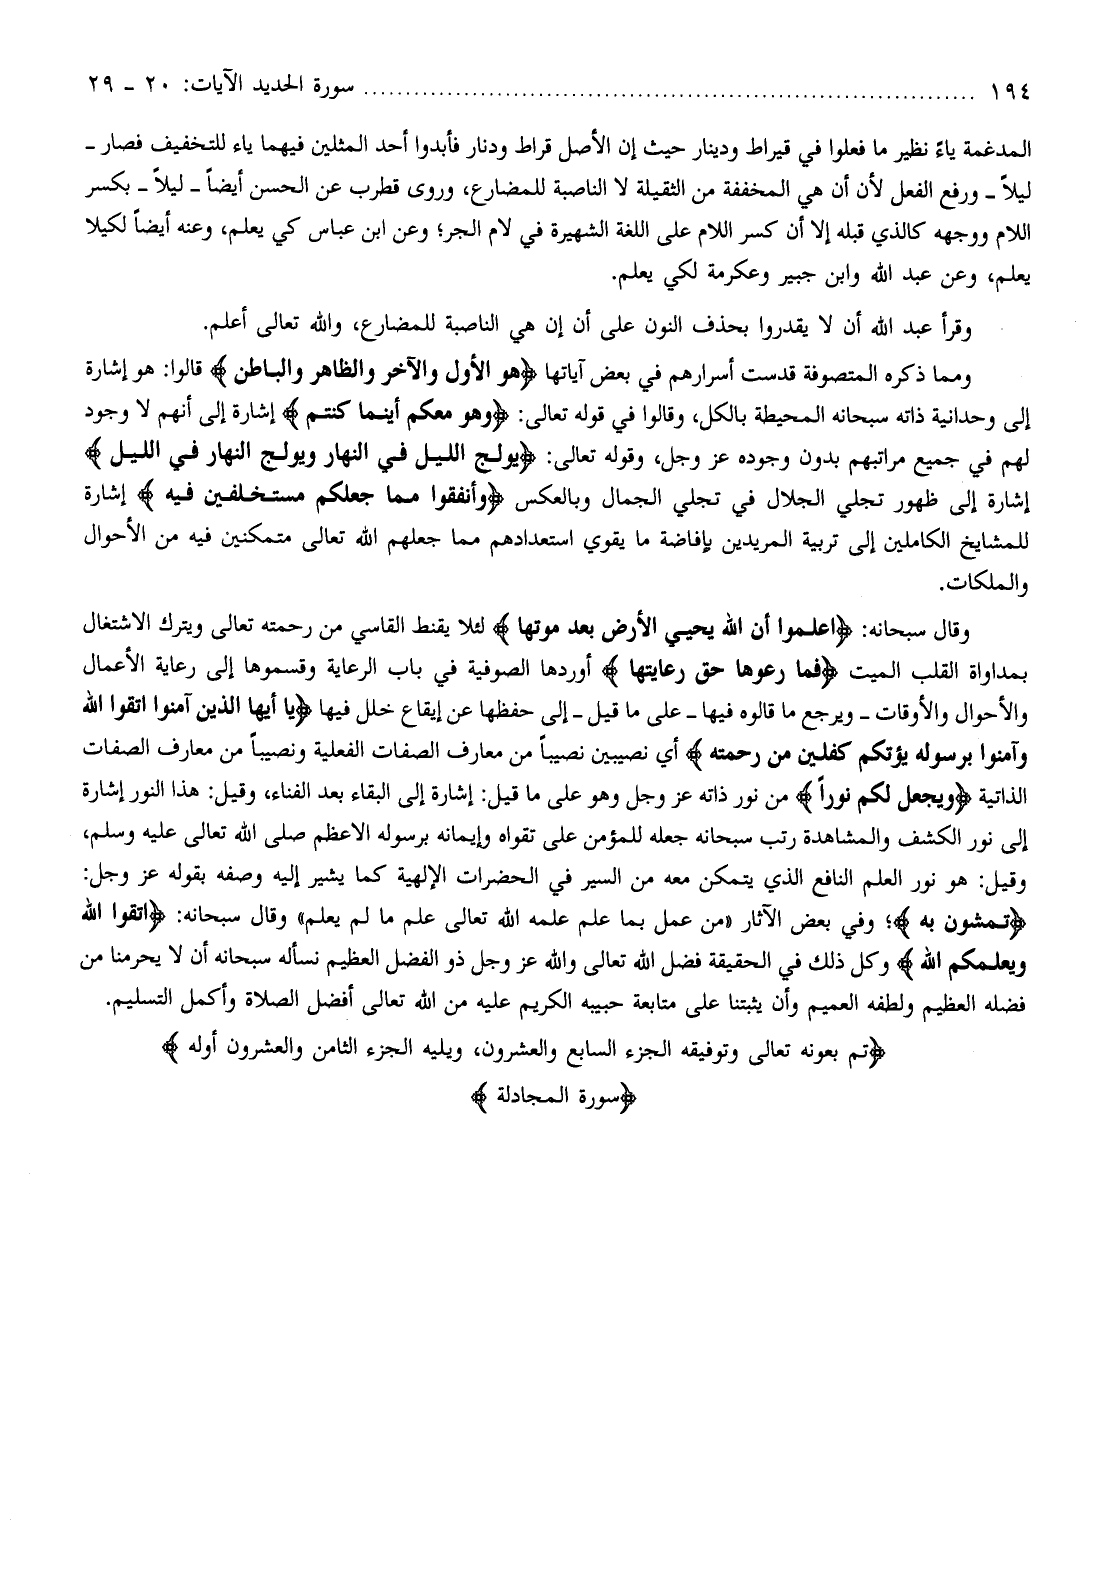 ١٩٤ ........................................................................ سورة الحديد الآيات: ٢٠ ـ ٢٩
المدغمة ياءً نظير ما فعلوا في قيراط ودينار حيث إن الأصل قراط ودنار فأبدوا أحد المثلين فيهما ياء للتخفيف فصار ـ
ليلاً ـ ورفع الفعل لأن أن هي المخففة من الثقيلة لا الناصبة للمضارع، وروى قطرب عن الحسن أيضاً ـ ليلاً ـ بكسر
اللام ووجهه كالذي قبله إلا أن كسر اللام على اللغة الشهيرة في لام الجر؛ وعن ابن عباس كي يعلم، وعنه أيضاً لكيلا
يعلم، وعن عبد الله وابن جبير وعكرمة لكي يعلم.
وقرأ عبد الله أن لا يقدروا بحذف النون على أن إن هي الناصبة للمضارع، والله تعالى أعلم.
ومما ذكره المتصوفة قدست أسرارهم في بعض آياتها ﴿هو الأول والآخر والظاهر والباطن﴾ قالوا: هو إشارة
إلى وحدانية ذاته سبحانه المحيطة بالكل، وقالوا في قوله تعالى: ﴿وهو معكم أينما كنتم﴾ إشارة إلى أنهم لا وجود
لهم في جميع مراتبهم بدون وجوده عز وجل، وقوله تعالى: ﴿يولج الليل في النهار ويولج النهار في الليل﴾
إشارة إلى ظهور تجلي الجلال في تجلي الجمال وبالعكس ﴿وأنفقوا مما جعلكم مستخلفين فيه﴾ إشارة
للمشايخ الكاملين إلى تربية المريدين بإفاضة ما يقوي استعدادهم مما جعلهم الله تعالى متمكنين فيه من الأحوال
والملكات.
وقال سبحانه: ﴿اعلموا أن الله يحيي الأرض بعد موتها﴾ لئلا يقنط القاسي من رحمته تعالى ويترك الاشتغال
بمداواة القلب الميت ﴿فما رعوها حق رعايتها﴾ أوردها الصوفية في باب الرعاية وقسموها إلى رعاية الأعمال
والأحوال والأوقات ـ ويرجع ما قالوه فيها ـ على ما قيل ـ إلى حفظها عن إيقاع خلل فيها ﴿يا أيها الذين آمنوا اتقوا الله
وآمنوا برسوله يؤتكم كفلين من رحمته﴾ أي نصيبين نصيباً من معارف الصفات الفعلية ونصيباً من معارف الصفات
الذاتية ﴿ويجعل لكم نوراً﴾ من نور ذاته عز وجل وهو على ما قيل: إشارة إلى البقاء بعد الفناء، وقيل: هذا النور إشارة
إلى نور الكشف والمشاهدة رتب سبحانه جعله للمؤمن على تقواه وإيمانه برسوله الاعظم صلى الله تعالى عليه وسلم،
وقيل: هو نور العلم النافع الذي يتمكن معه من السير في الحضرات الإلهية كما يشير إليه وصفه بقوله عز وجل:
﴿تمشون به﴾؛ وفي بعض الآثار «من عمل بما علم علمه الله تعالى علم ما لم يعلم» وقال سبحانه: ﴿اتقوا الله
ويعلمكم الله﴾ وكل ذلك في الحقيقة فضل الله تعالى والله عز وجل ذو الفضل العظيم نسأله سبحانه أن لا يحرمنا من
فضله العظيم ولطفه العميم وأن يثبتنا على متابعة حبيبه الكريم عليه من الله تعالى أفضل الصلاة وأكمل التسليم.
﴿تم بعونه تعالى وتوفيقه الجزء السابع والعشرون، ويليه الجزء الثامن والعشرون أوله﴾
﴿سورة المجادلة﴾